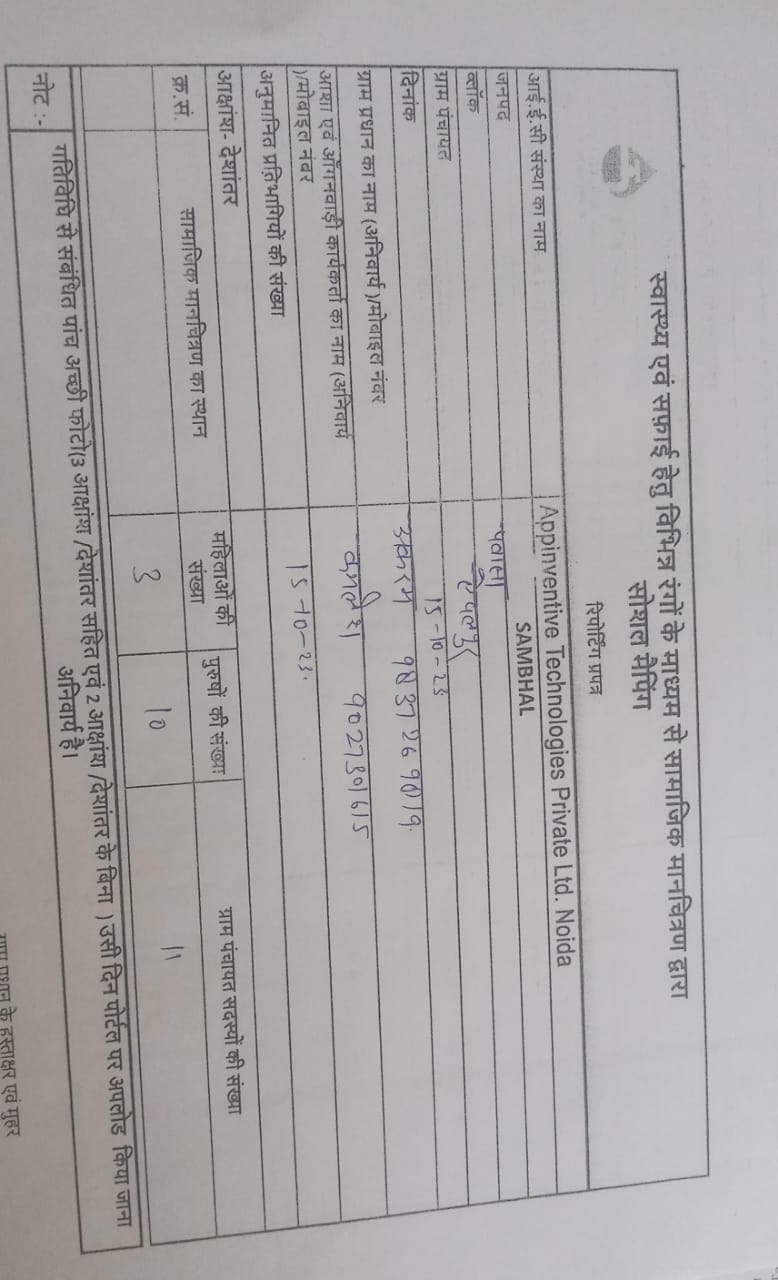 स्वास्थ्य एवं सफ़ाई हेतु विभिन्न रंगों के माध्यम से सामाजिक मानचित्रण द्वारा
सोशल मैपिंग
रिपोर्टिंग प्रपत्र
आई.ई.सी संस्था का नाम Appinventive Technologies Private Ltd. Noida
जनपद SAMBHAL
ब्लॉक पवासा
ग्राम पंचायत
दिनांक 15-10-23
ग्राम प्रधान का नाम (अनिवार्य )/मोबाइल नंबर
आशा एवं आँगनवाड़ी कार्यकर्ता का नाम (अनिवार्य
)/मोबाइल नंबर कमलेश 9027801615
अनुमानित प्रतिभागियों की संख्या 15-10-23.
आक्षांश- देशांतर
क्र.सं. सामाजिक मानचित्रण का स्थान महिलाओं की संख्या पुरुषों की संख्या ग्राम पंचायत सदस्यों की संख्या
3 10 11
नोट :- गतिविधि से संबंधित पांच अच्छी फोटो(3 आक्षांश /देशांतर सहित एवं 2 आक्षांश /देशांतर के बिना ) उसी दिन पोर्टल पर अपलोड किया जाना
अनिवार्य है।
ग्राम प्रधान के हस्ताक्षर एवं मुहर